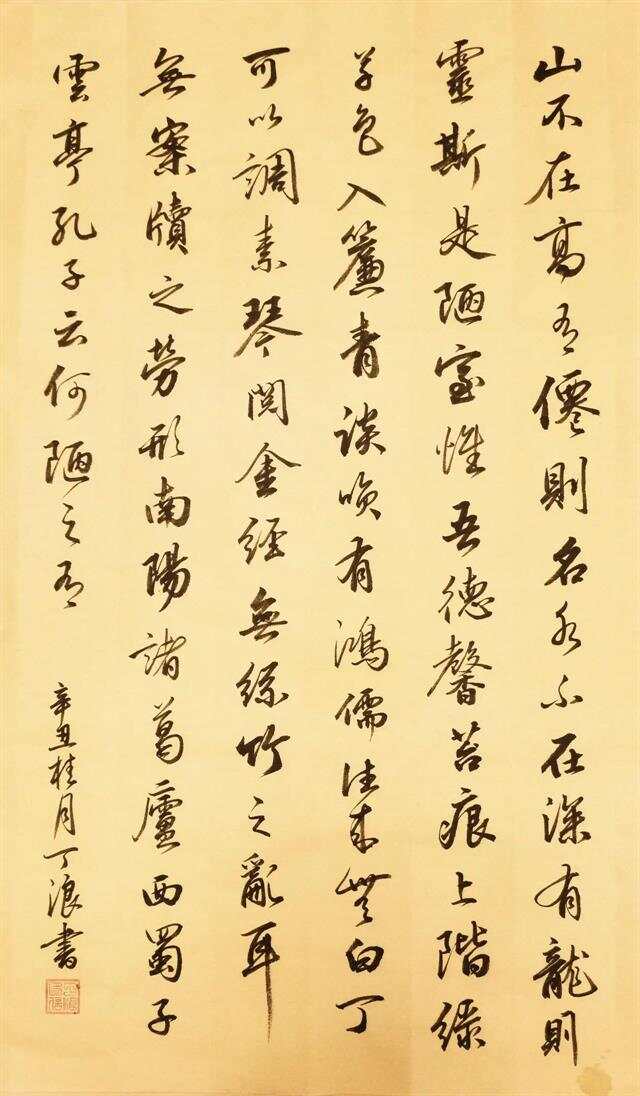 山不在高有僊則名水不在深有龍則
靈斯是陋室惟吾德馨苔痕上階綠
草色入簾青談笑有鴻儒往來無白丁
可以調素琴閱金經無絲竹之亂耳
無案牘之勞形南陽諸葛廬西蜀子
雲亭孔子云何陋之有
辛丑桂月丁浪書